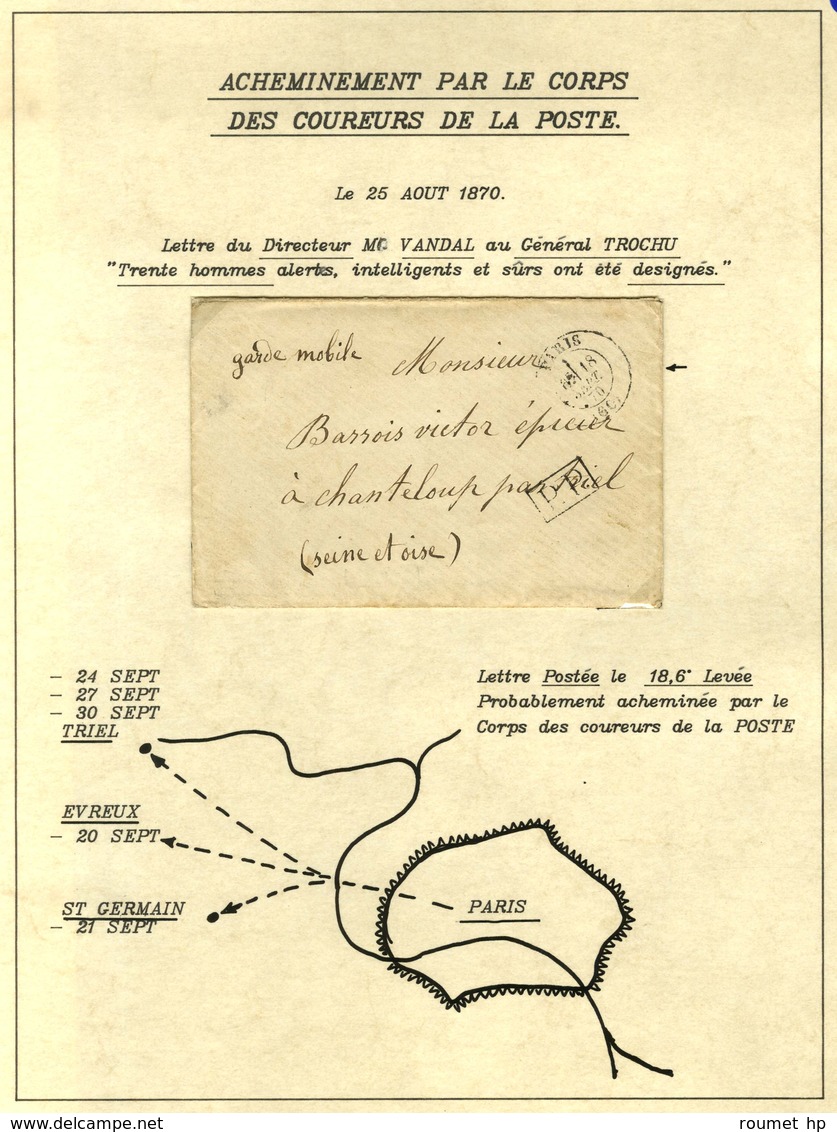 ACHEMINEMENT PAR LE CORPS
DES COUREURS DE LA POSTE.
Le 25 AOUT 1870.
Lettre du Directeur Mr VANDAL au Général TROCHU
"Trente hommes alertes, intelligents et sûrs ont été designés."
garde mobile
Monsieur
PARIS
18
SEPT.
70
(60)
Barrois victor épicier
à chanteloup par triel
P.P.
(seine et oise)
- 24 SEPT
- 27 SEPT
- 30 SEPT
TRIEL
Lettre Postée le 18,6° Levée
Probablement acheminée par le
Corps des coureurs de la POSTE
EVREUX
- 20 SEPT
ST GERMAIN
- 21 SEPT
PARIS
www.delcampe.net
roumet hp